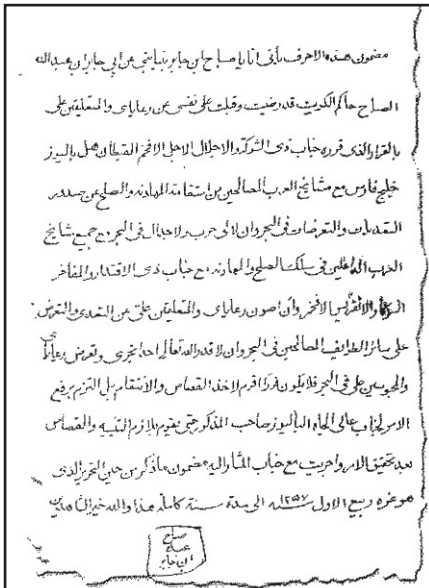 مضمون هذه الاحرف بأني انا يا صباح ابن جابر بنيابتي عن ابي جابر ابن عبد الله
الصباح حاكم الكويت قد رضيت وقبلت على نفسي عن رعاياي والمتعلقين علي
بالقرار الذي قرره جناب ذي الشوكة والاجلال الاجل الافخم القبطان هنل باليوز
خليج فارس مع مشايخ العرب الصالحين من استقامة المهادنه والصلح عن صدور
التعديات والتعرضات في البحر وان لا لي حرب ولا جدال في البحر مع جميع مشايخ
العرب الداخلين في سلك الصلح والمهادنه مع جناب ذي الاقتدار والمفاخر
السركار الانقريس الافخم وان اصون رعاياي والمتعلقين علي من التعدي والتعرض
على سائر الطوايف الصالحين في البحر وان لا قدر الله تعالى احد تجرى وتعرض رعاياي
والمحسوبين علي في البحر فلا يكون فرا اقرم لاخذ القصاص والانتقام بل التزم برفع
الامر لجناب عالي الجاه الباليوز صاحب المذكور حتى يقوم بلازم التنبيه والقصاص
بعد تحقيق الامر واجريت مع جناب المشار اليه مضمون ما ذكر من حين التحرير الذي
هو غره ربيع الاول سنه ١٢٥٧ الى مدة سنة كاملة هذا والله خير الشاهدين
صباح
عبده
ابن جابر